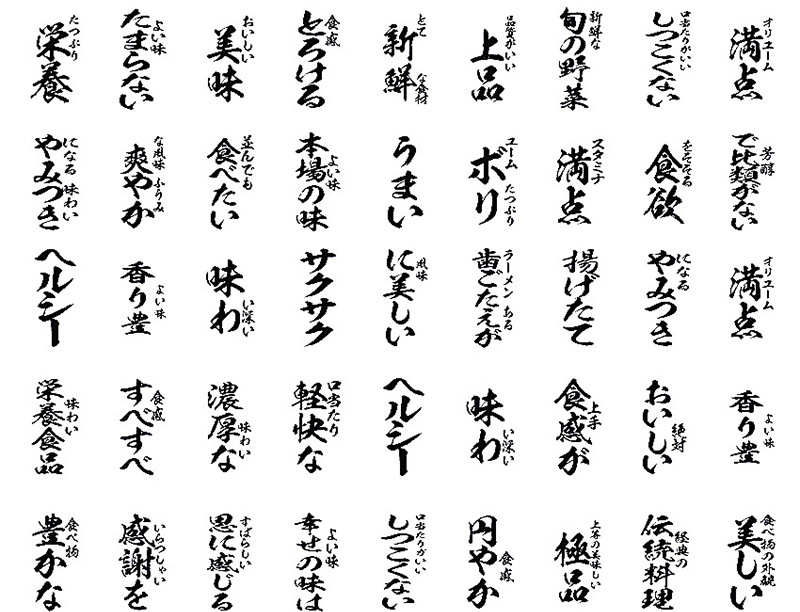 オリユーム
満点
口当たりがいい
しつこくない
新鮮な
旬の野菜
品質がいい
上品
とて な食材
新鮮
食感
とろける
おいしい
美味
よい味
たまらない
たつぷり
栄養
芳醇
で比類がない
をそそる
食欲
スタミナ
満点
ユーム たつぷり
ボリ
うまい
よい味
本場の味
並んでも
食べたい
な風味 ふりみ
爽やか
になる 味わい
やみつき
オリユーム
満点
になる
やみつき
揚げたて
ラーメン ある
歯ごたえが
風味
に美しい
サクサク
い深い
味わ
よい味
香り豊
ヘルシー
よい味
香り豊
絶対
おいしい
上手
食感が
い深い
味わ
ヘルシー
口当たり
軽快な
味わい
濃厚な
食感
すべすべ
味わい
栄養食品
食べ物の外観
美しい
経典の
伝統料理
上等の美味しい
極品
食感
円やか
口当たりがいい
しつこくない
よい味
幸せの味は
すばらしい
忍に感じる
いらつしやい
感謝を
食べ物
豊かな